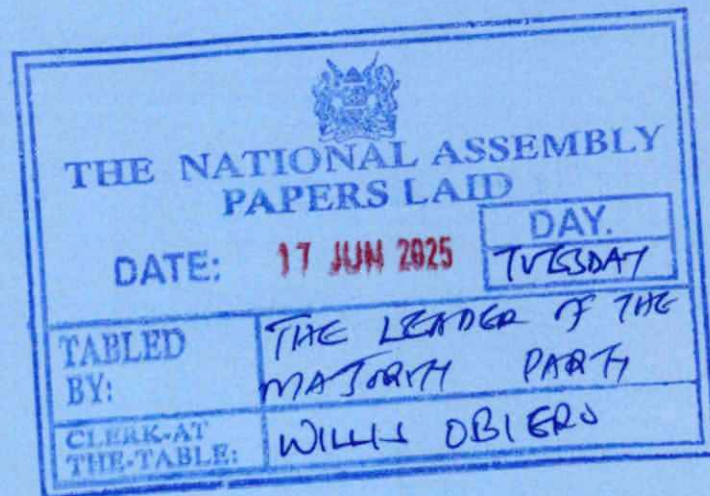 THE NATIONAL ASSEMBLY
PAPERS LAID
DATE: 17 JUN 2025
DAY.
TUESDAY
TABLED BY:
THE LEADER OF THE
MAJORITY PARTY
CLERK-AT THE-TABLE:
WILLIS OBIERO